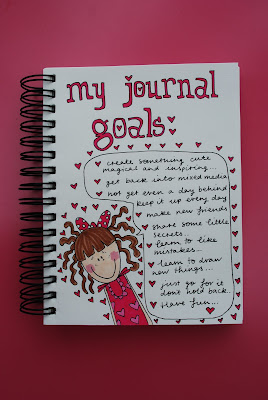 my journal
goals:
create something cute
magical and inspiring...
get back into mixed media
not get even a day behind
keep it up every day
make new friends
share some little
secrets...
learn to like
mistakes...
learn to draw
new things...
just go for it
don't hold back
Have fun...